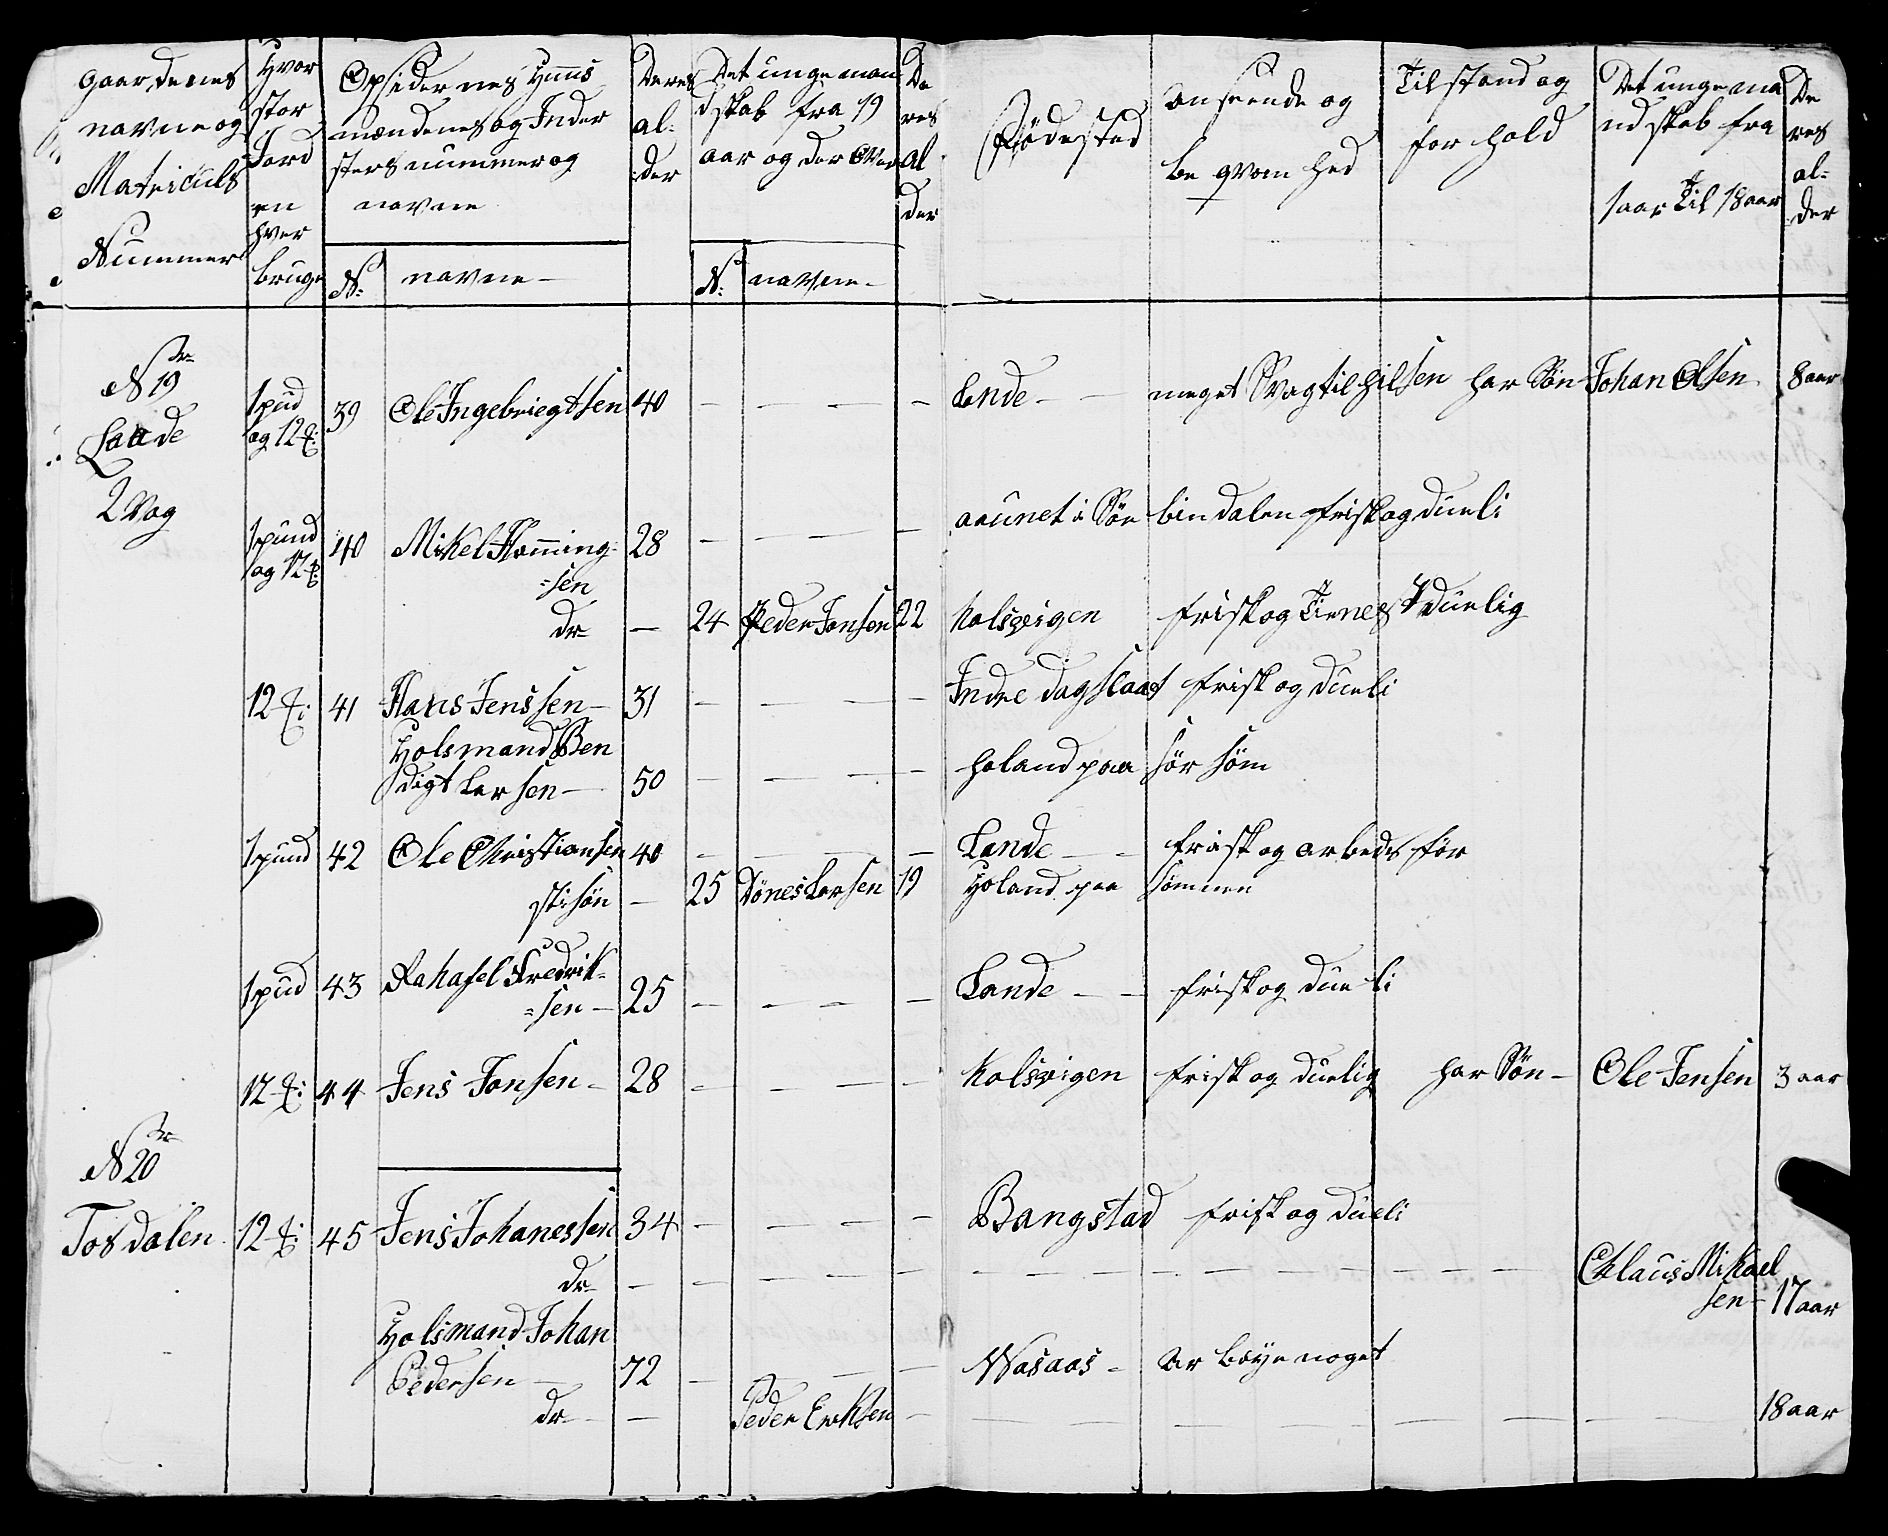 gaardenes navne og Matriculs Nummer
Hvor stor Jord en hver bruge
Opsidernes Huus mændenes og Inder sters nummer og navne
N: navne
Deres al: der
Det unge man dskab fra 19 aar og der over
N: navne
De res al der
Födested
Anseende og be qvom hed
Tilstand og for hold
Det unge ma nd skab fra 1 aar Til 18 aar
De res al: der
Nr 19 Lande 2 Vog
1 pud og 12 39 Ole Ingebriegtsen 40 — — — — Lande — meget Svagtilhilsen har Sön Johan Olsen 8 aar
1 pund og 12 40 Mikel Flemming= =sen 28 — — — — aaunet i Sör bindalen frisk og dueli
dr — 24 Peder Jonsen 22 Kolsvigen frisk og Tienest duelig
12 41 Hans Jenssen — 31 — — — — Indre dagslaat frisk og dueli
Holsmand Ben digt Larsen — 50 — — — — holand paa sör söm
1 pund 42 Ole Christiansen 40 — — — Lande — frisk og arbeds för
stisön — 25 Tönes Larsen 19 Holand paa sömnen
1 pud 43 Rahafel Fredrik= =sen — 25 — — — — Lande — — frisk og dueli
12 44 Jens Jonsen — 28 — — — — Kolsvigen frisk og duelig har Sön — Ole Jensen 3 aar
Nr 20
Tosdalen 12 45 Jens Johanessen 34 — — — — Bangstad frisk og dueli
dr — — — — — Chlaus Mikael sen — 17 aar
Holsmand Johan Pedersen — 72 — — — Wasaas — ar beye noget
dr — — Peder Eriksen — — — — 18 aar